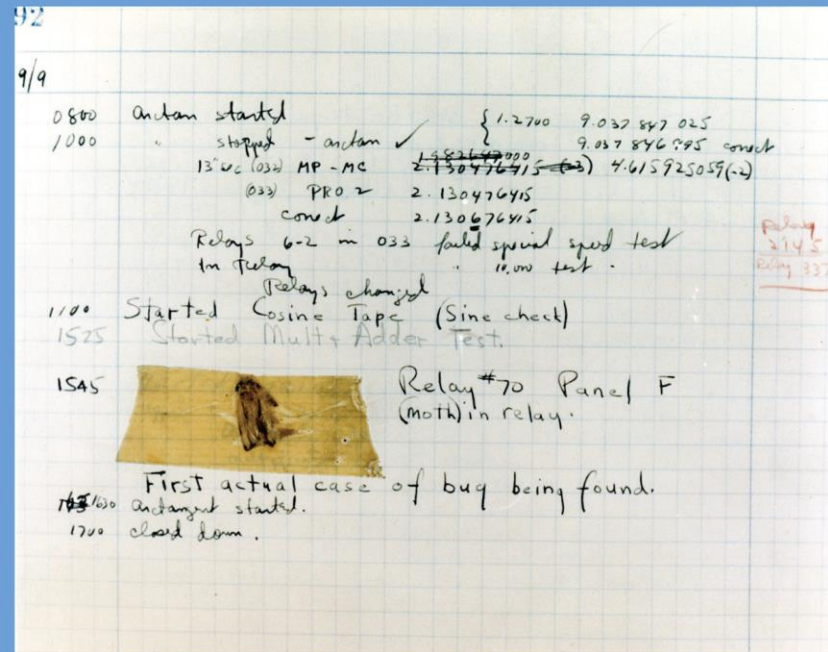 92
9/9
0800 antan started { 1.2700 9.037 847 025
1000 " stopped - antan ✓ 9.037 846 995 conect
13"uc (032) MP - MC 2.130476415 (-3) 4.615925059(-2)
(033) PRO 2 2.130476415
conect 2.130676415
Relays 6-2 in 033 failed special speed test
In Relay " 10.000 test.
Relays changed
1100 Started Cosine Tape (Sine check)
1525 Started Mult+ Adder Test.
1545 Relay #70 Panel F
(moth) in relay.
First actual case of bug being found.
1630 antangent started.
1700 closed down.
Relay
2145
Relay 337